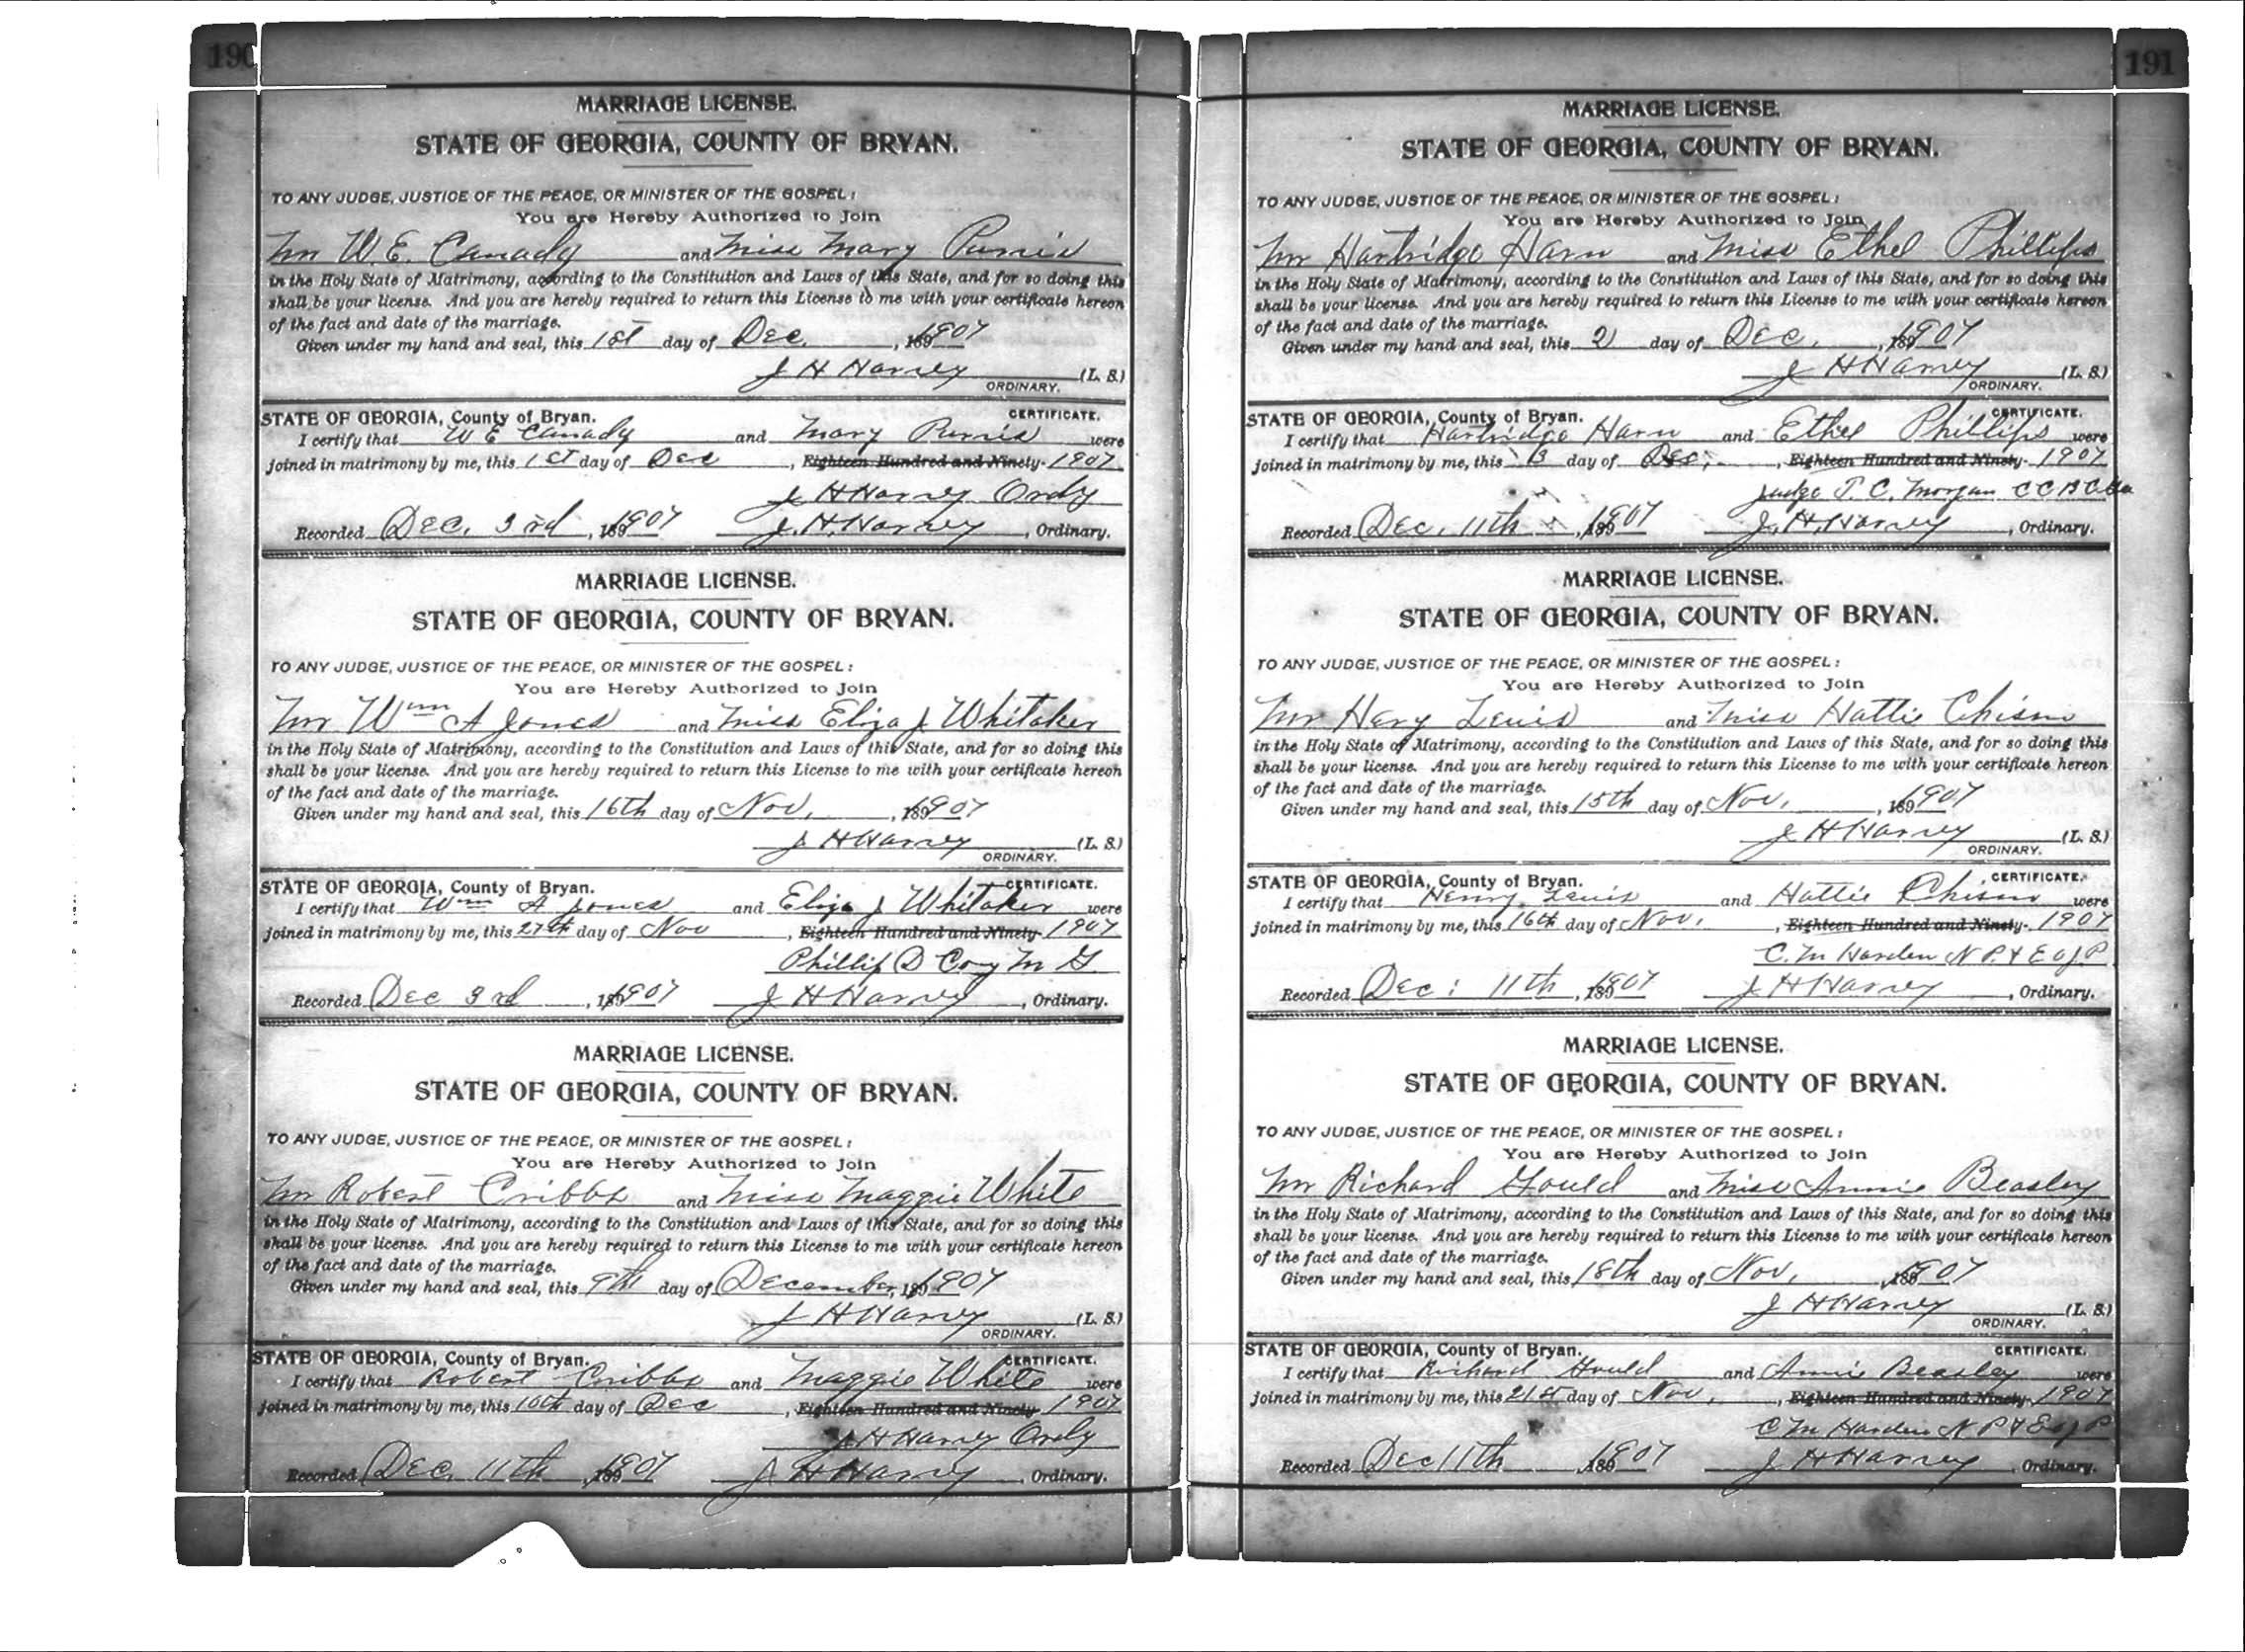 190
MARRIAGE LICENSE.
STATE OF GEORGIA, COUNTY OF BRYAN.
TO ANY JUDGE, JUSTICE OF THE PEACE, OR MINISTER OF THE GOSPEL:
You are Hereby Authorized to Join
Mr W. E. Canady and Miss Mary Purvis
in the Holy State of Matrimony, according to the Constitution and Laws of this State, and for so doing this
shall be your license. And you are hereby required to return this License to me with your certificate hereon
of the fact and date of the marriage.
Given under my hand and seal, this 1st day of Dec. , 1907
J H Harvey (L. S.)
ORDINARY.
STATE OF GEORGIA, County of Bryan. CERTIFICATE.
I certify that W E Canady and Mary Purvis were
joined in matrimony by me, this 1st day of Dec , Eighteen Hundred and Ninety- 1907
J H Harvey Ordy
Recorded Dec. 3rd , 1907 J. H. Harvey , Ordinary.
MARRIAGE LICENSE.
STATE OF GEORGIA, COUNTY OF BRYAN.
TO ANY JUDGE, JUSTICE OF THE PEACE, OR MINISTER OF THE GOSPEL:
You are Hereby Authorized to Join
Mr Wm A Jones and Miss Eliza J Whitaker
in the Holy State of Matrimony, according to the Constitution and Laws of this State, and for so doing this
shall be your license. And you are hereby required to return this License to me with your certificate hereon
of the fact and date of the marriage.
Given under my hand and seal, this 16th day of Nov. , 1907
J H Harvey (L. S.)
ORDINARY.
STATE OF GEORGIA, County of Bryan. CERTIFICATE.
I certify that Wm A Jones and Eliza J Whitaker were
joined in matrimony by me, this 27th day of Nov , Eighteen Hundred and Ninety- 1907
Phillip D Cory M G
Recorded Dec 3rd , 1907 J H Harvey , Ordinary.
MARRIAGE LICENSE.
STATE OF GEORGIA, COUNTY OF BRYAN.
TO ANY JUDGE, JUSTICE OF THE PEACE, OR MINISTER OF THE GOSPEL:
You are Hereby Authorized to Join
Mr Robert Cribbs and Miss Maggie White
in the Holy State of Matrimony, according to the Constitution and Laws of this State, and for so doing this
shall be your license. And you are hereby required to return this License to me with your certificate hereon
of the fact and date of the marriage.
Given under my hand and seal, this 9th day of December, 1907
J H Harvey (L. S.)
ORDINARY.
STATE OF GEORGIA, County of Bryan. CERTIFICATE.
I certify that Robert Cribbs and Maggie White were
joined in matrimony by me, this 10th day of Dec , Eighteen Hundred and Ninety- 1907
J H Harvey Ordy
Recorded Dec. 11th , 1907 J H Harvey , Ordinary.
191
MARRIAGE LICENSE.
STATE OF GEORGIA, COUNTY OF BRYAN.
TO ANY JUDGE, JUSTICE OF THE PEACE, OR MINISTER OF THE GOSPEL:
You are Hereby Authorized to Join
Mr Hartridge Harn and Miss Ethel Phillips
in the Holy State of Matrimony, according to the Constitution and Laws of this State, and for so doing this
shall be your license. And you are hereby required to return this License to me with your certificate hereon
of the fact and date of the marriage.
Given under my hand and seal, this 2 day of Dec. , 1907
J H Harvey (L. S.)
ORDINARY.
STATE OF GEORGIA, County of Bryan. CERTIFICATE.
I certify that Hartridge Harn and Ethel Phillips were
joined in matrimony by me, this day of Dec. , Eighteen Hundred and Ninety- 1907
Judge P. C. Morgan C C B C Ga
Recorded Dec. 11th , 1907 J. H. Harvey , Ordinary.
MARRIAGE LICENSE.
STATE OF GEORGIA, COUNTY OF BRYAN.
TO ANY JUDGE, JUSTICE OF THE PEACE, OR MINISTER OF THE GOSPEL:
You are Hereby Authorized to Join
Mr Henry Lewis and Miss Hattie Chism
in the Holy State of Matrimony, according to the Constitution and Laws of this State, and for so doing this
shall be your license. And you are hereby required to return this License to me with your certificate hereon
of the fact and date of the marriage.
Given under my hand and seal, this 15th day of Nov. , 1907
J H Harvey (L. S.)
ORDINARY.
STATE OF GEORGIA, County of Bryan. CERTIFICATE.
I certify that Henry Lewis and Hattie Chism were
joined in matrimony by me, this 16th day of Nov. , Eighteen Hundred and Ninety- 1907
C. M Harden N P & E o J P
Recorded Dec: 11th , 1907 J H Harvey , Ordinary.
MARRIAGE LICENSE.
STATE OF GEORGIA, COUNTY OF BRYAN.
TO ANY JUDGE, JUSTICE OF THE PEACE, OR MINISTER OF THE GOSPEL:
You are Hereby Authorized to Join
Mr Richard Gould and Miss Annie Beasley
in the Holy State of Matrimony, according to the Constitution and Laws of this State, and for so doing this
shall be your license. And you are hereby required to return this License to me with your certificate hereon
of the fact and date of the marriage.
Given under my hand and seal, this 18th day of Nov. , 1907
J H Harvey (L. S.)
ORDINARY.
STATE OF GEORGIA, County of Bryan. CERTIFICATE.
I certify that Richard Gould and Annie Beasley were
joined in matrimony by me, this 21st day of Nov. , Eighteen Hundred and Ninety- 1907
C M Harden N P & E o J P
Recorded Dec 11th , 1907 J H Harvey , Ordinary.